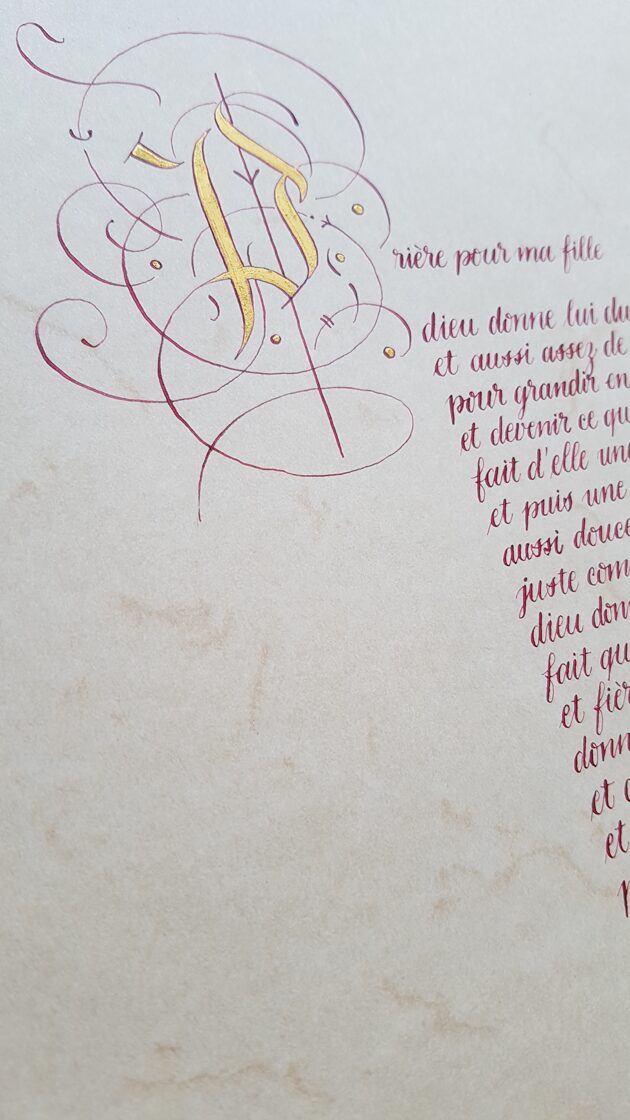 Prière pour ma fille
dieu donne lui du
et aussi assez de
pour grandir en
et devenir ce qu
fait d'elle une
et puis une
aussi douce
juste com
dieu don
fait qu
et fièr
donn
et
et